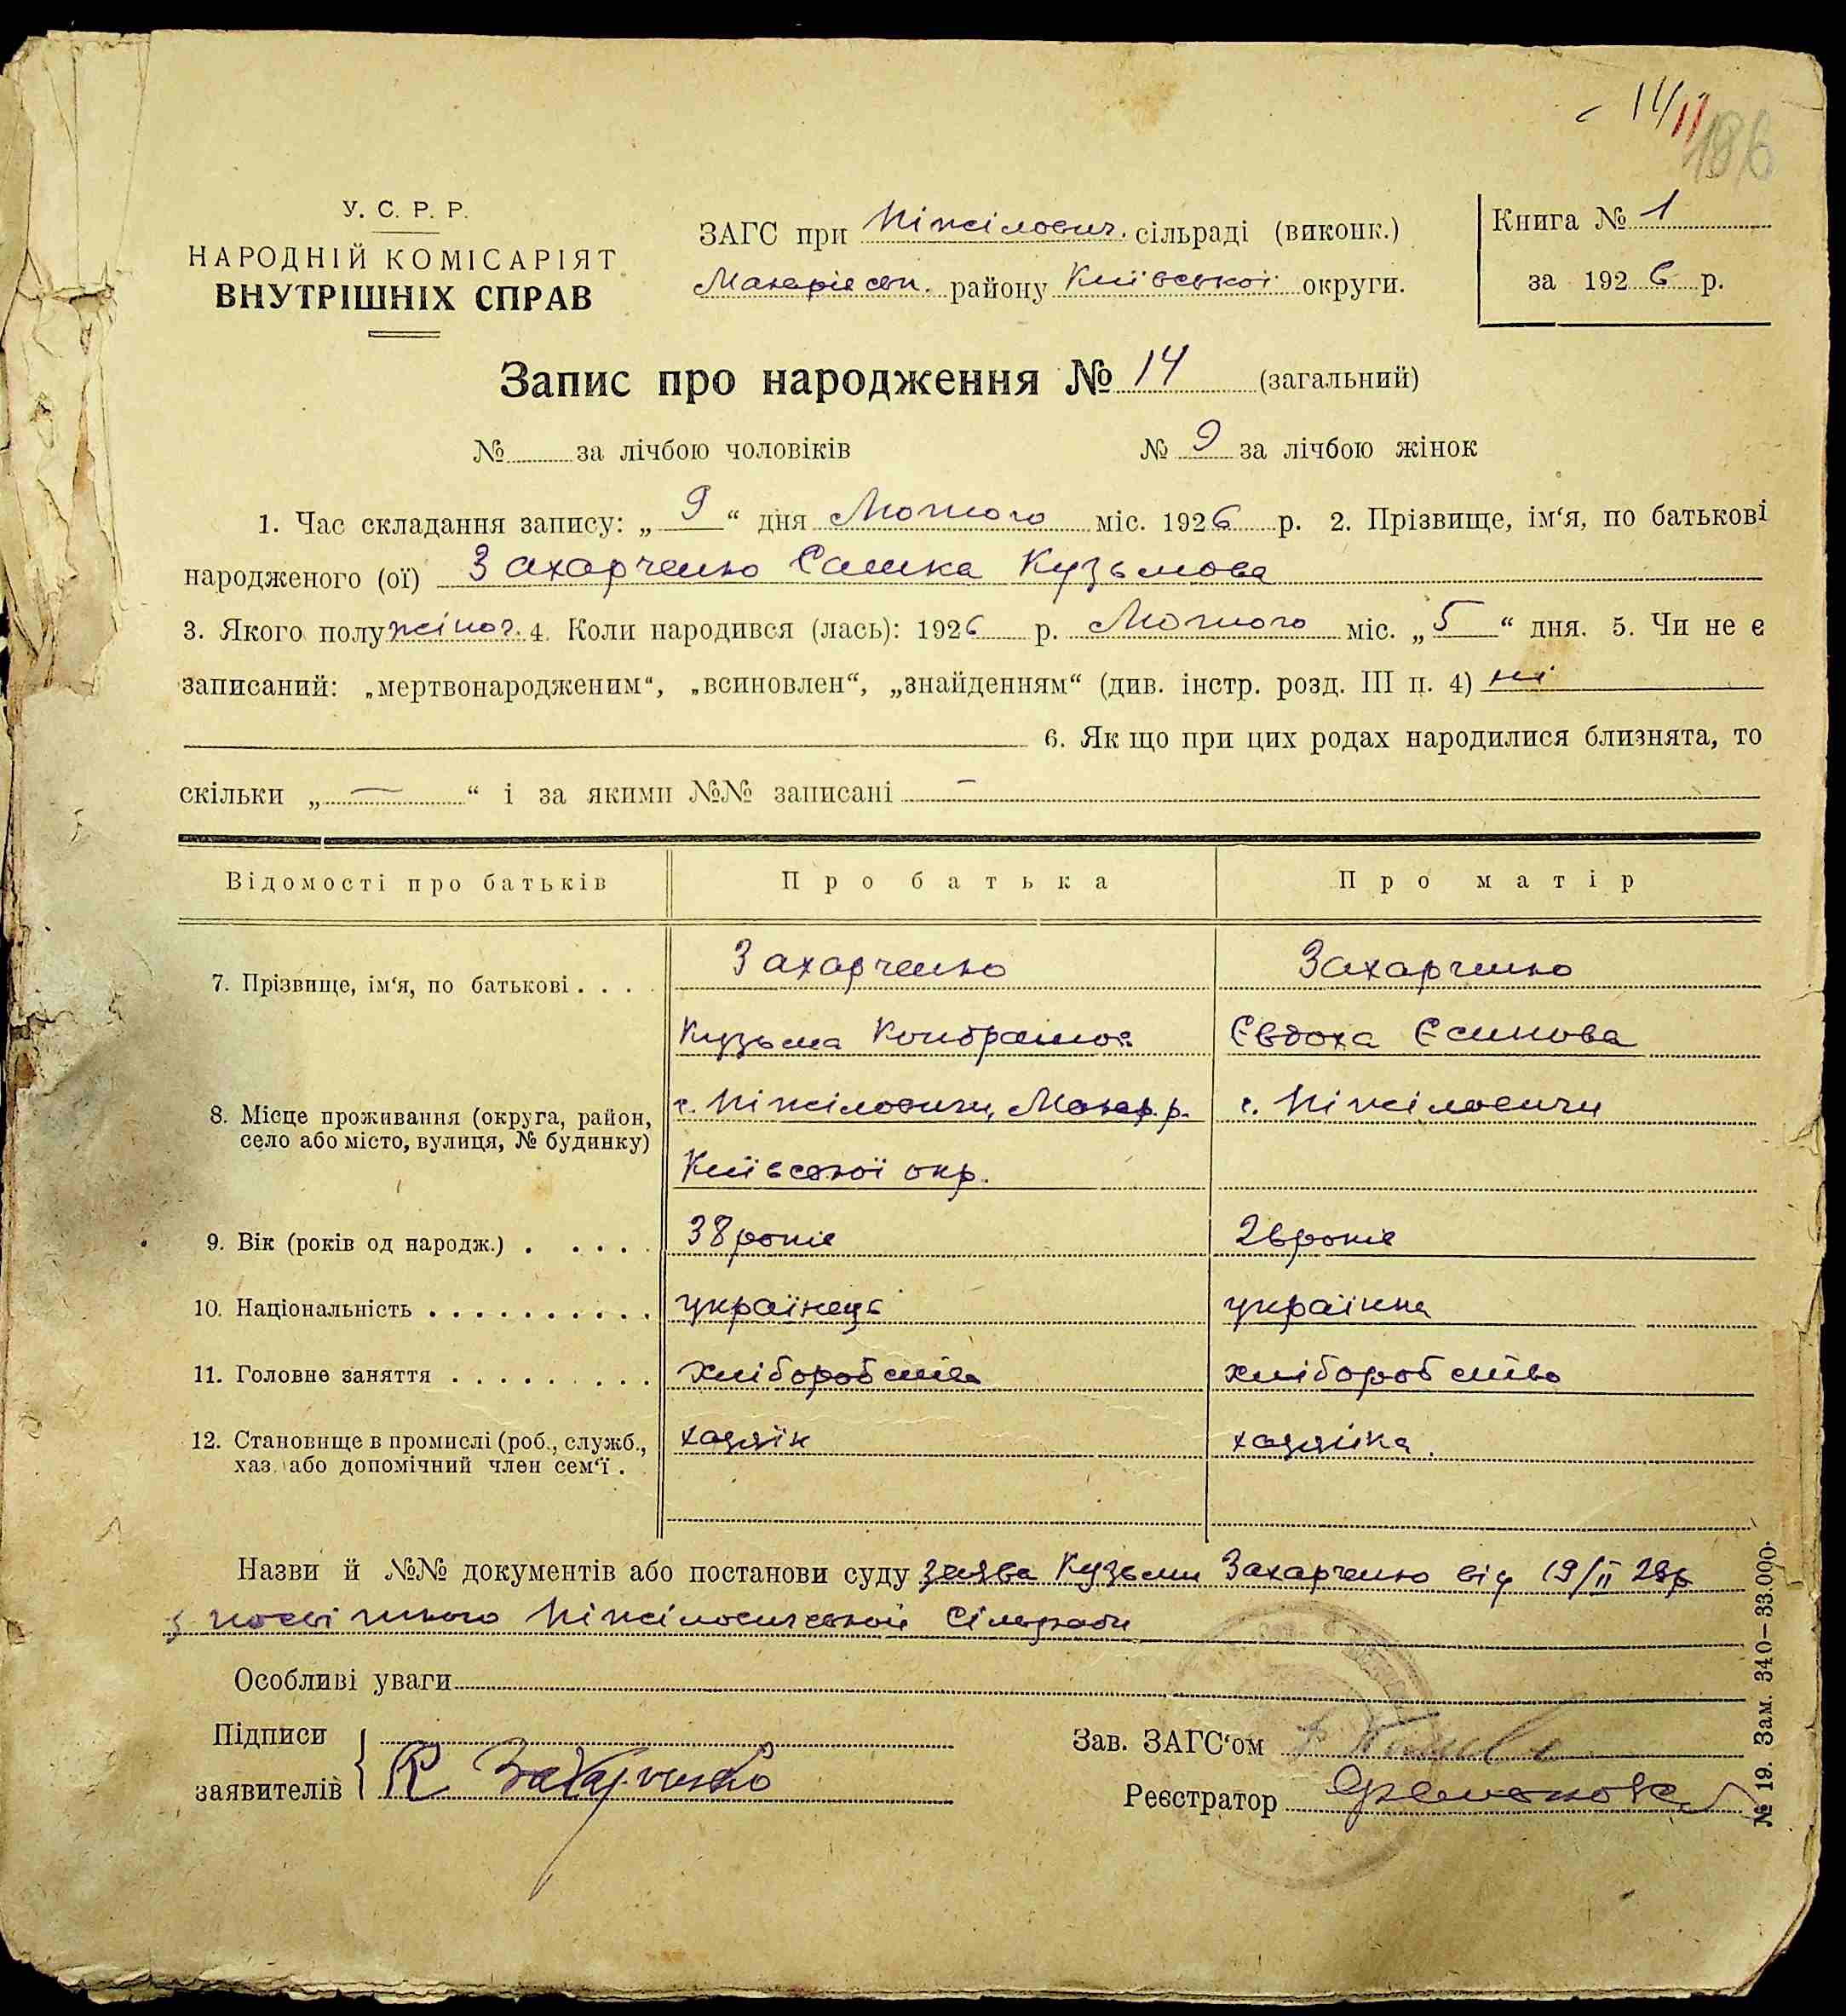 14/11
186
У. С. Р. Р.
НАРОДНІЙ КОМІСАРІЯТ
ВНУТРІШНІХ СПРАВ
ЗАГС при Ніжілович. сільраді (виконк.)
Макарівськ. району Київської округи.
Книга № 1
за 1926 р.
Запис про народження № 14 (загальний)
№ за лічбою чоловіків № 9 за лічбою жінок
1. Час складання запису: „ 9 “ дня Лютого міс. 1926 р. 2. Прізвище, ім‘я, по батькові
народженого (ої) Захарченко Кузьмова
3. Якого полу жіноч. 4. Коли народився (лась): 1926 р. Лютого міс. „ 5 “ дня. 5. Чи не є
записаний: „мертвонародженим“, „всиновлен“, „знайденням“ (див. інстр. розд. III п. 4) ні
6. Як що при цих родах народилися близнята, то
скільки „ — “ і за якими №№ записані —
Відомості про батьків Про батька Про матір
7. Прізвище, ім‘я, по батькові . . . . Захарченко Захарченко
Кузьма Кондратов Євдоха
8. Місце проживання (округа, район, с. Ніжіловичи, Макар. р. с. Ніжіловичи
село або місто, вулиця, № будинку)
Київської окр.
9. Вік (років од народж.) . . . . . 38 років 26 років
10. Національність . . . . . . . . . . українець українка
11. Головне заняття . . . . . . . . . хліборобство хліборобство
12. Становище в промислі (роб., служб., хазяїн хазяйка.
хаз. або допомічний член сем‘ї .
Назви й №№ документів або постанови суду заява Кузьми Захарченко від 19/II 28р
з посвідкою Ніжіловичської Сільради
Особливі уваги
Підписи
заявителів К Захарченко
Зав. ЗАГС‘ом
Реєстратор
№ 19. Зам. 340–33.000.